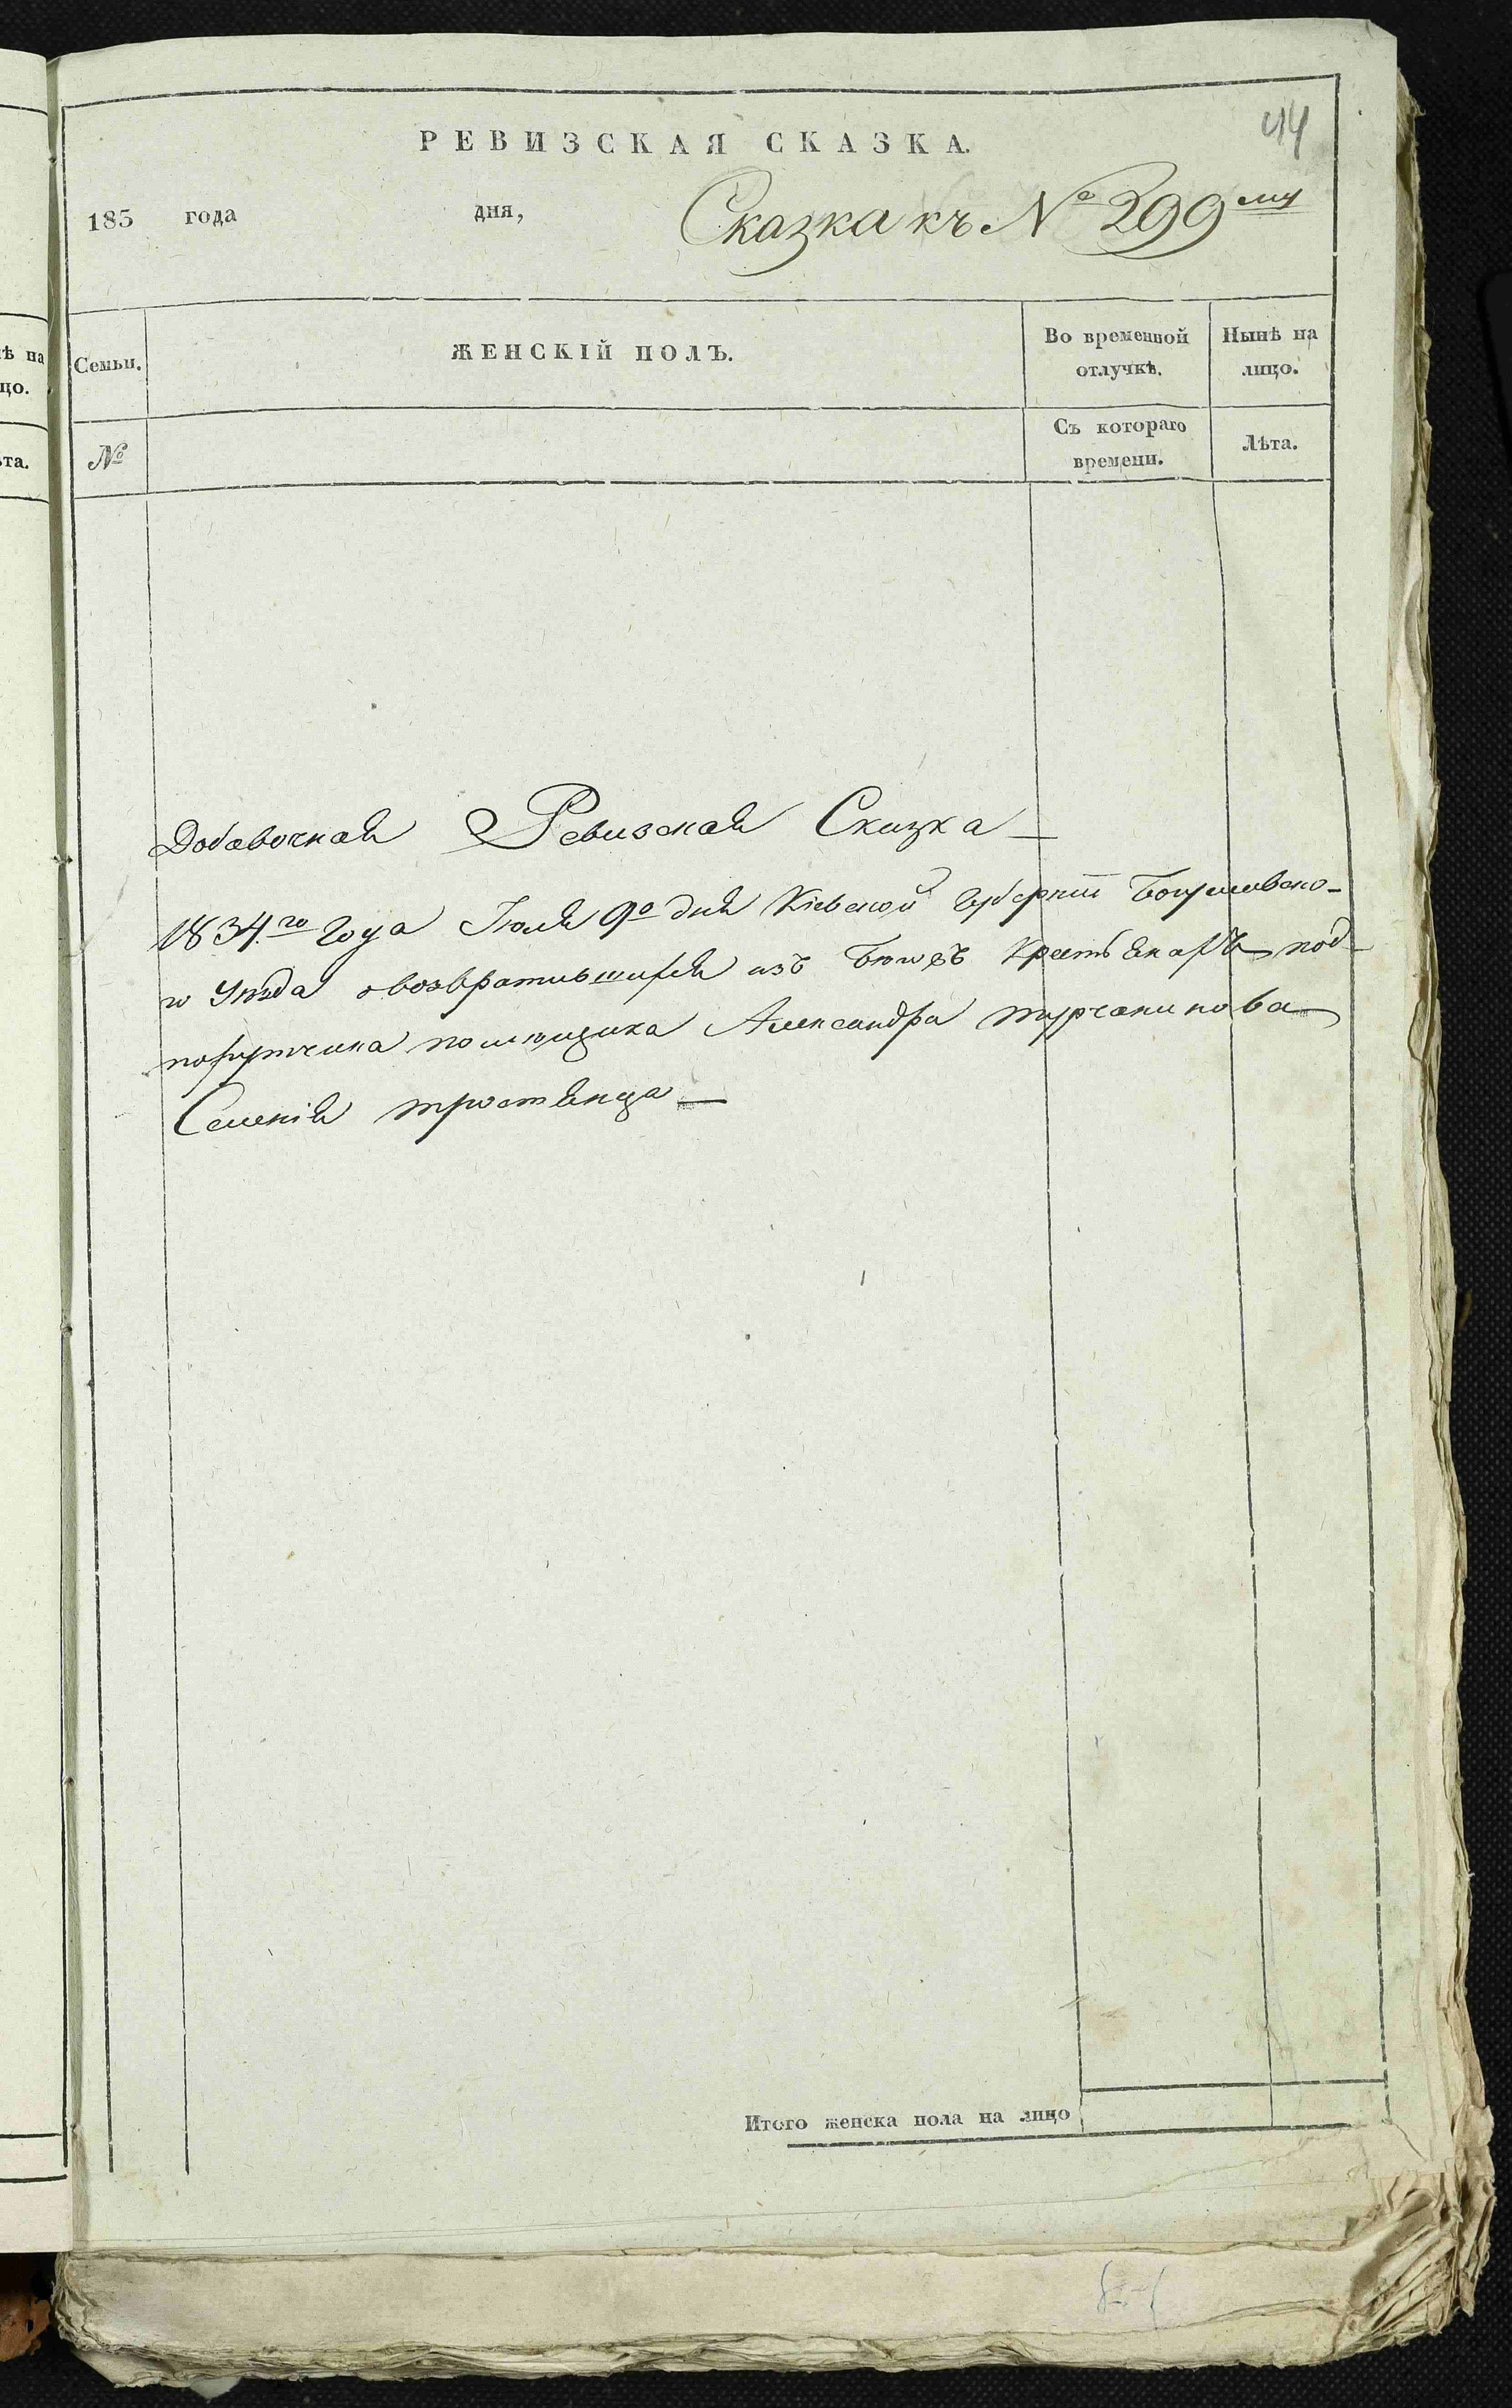 44
РЕВИЗСКАЯ СКАЗКА.
185 года дня, Сказка къ № 299му
Семьи. ЖЕНСКІЙ ПОЛЪ. Во временной отлучкѣ. Нынѣ на лицо.
№ Съ котораго времени. Лѣта.
Добавочная Ревизская Сказка
1834го Года Іюля 9о дня Кіевской Губерніи Богуславско-
го Уѣзда о возвратившихся изъ Крестьянахъ под-
порутчика помющика Александра турчанинова
Селенія тростянца
Итого женска пола на лицо